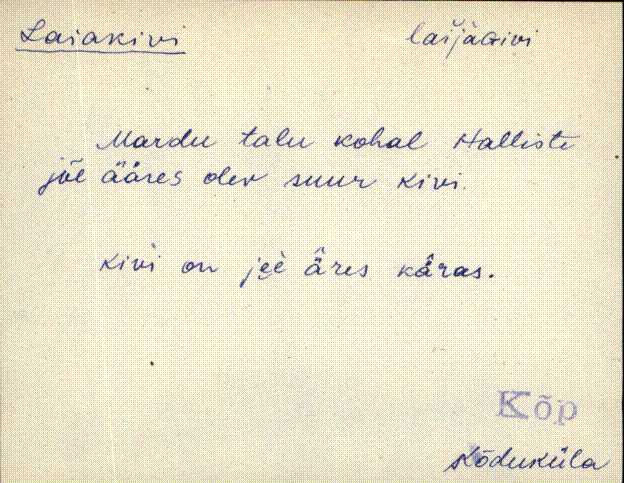 Laiakivi laijaGivi
Mardu talu kohal Halliste
jõe ääres olev suur kivi.
kivi on jẹe äres käras.
Kõp
Kõduküla